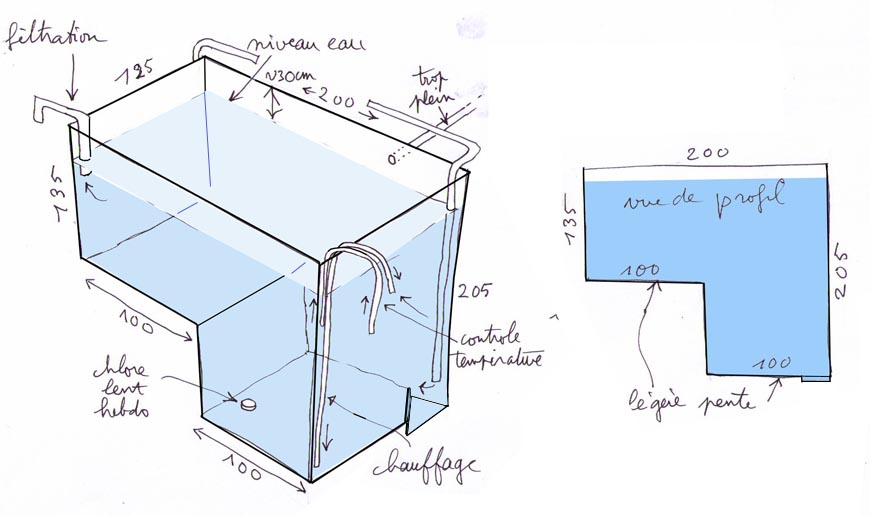 filtration
125
niveau eau
~30cm
200
trop
plein
135
100
205
controle
température
chlore
lent
hebdo
100
chauffage
200
vue de profil
135
100
205
100
légère pente